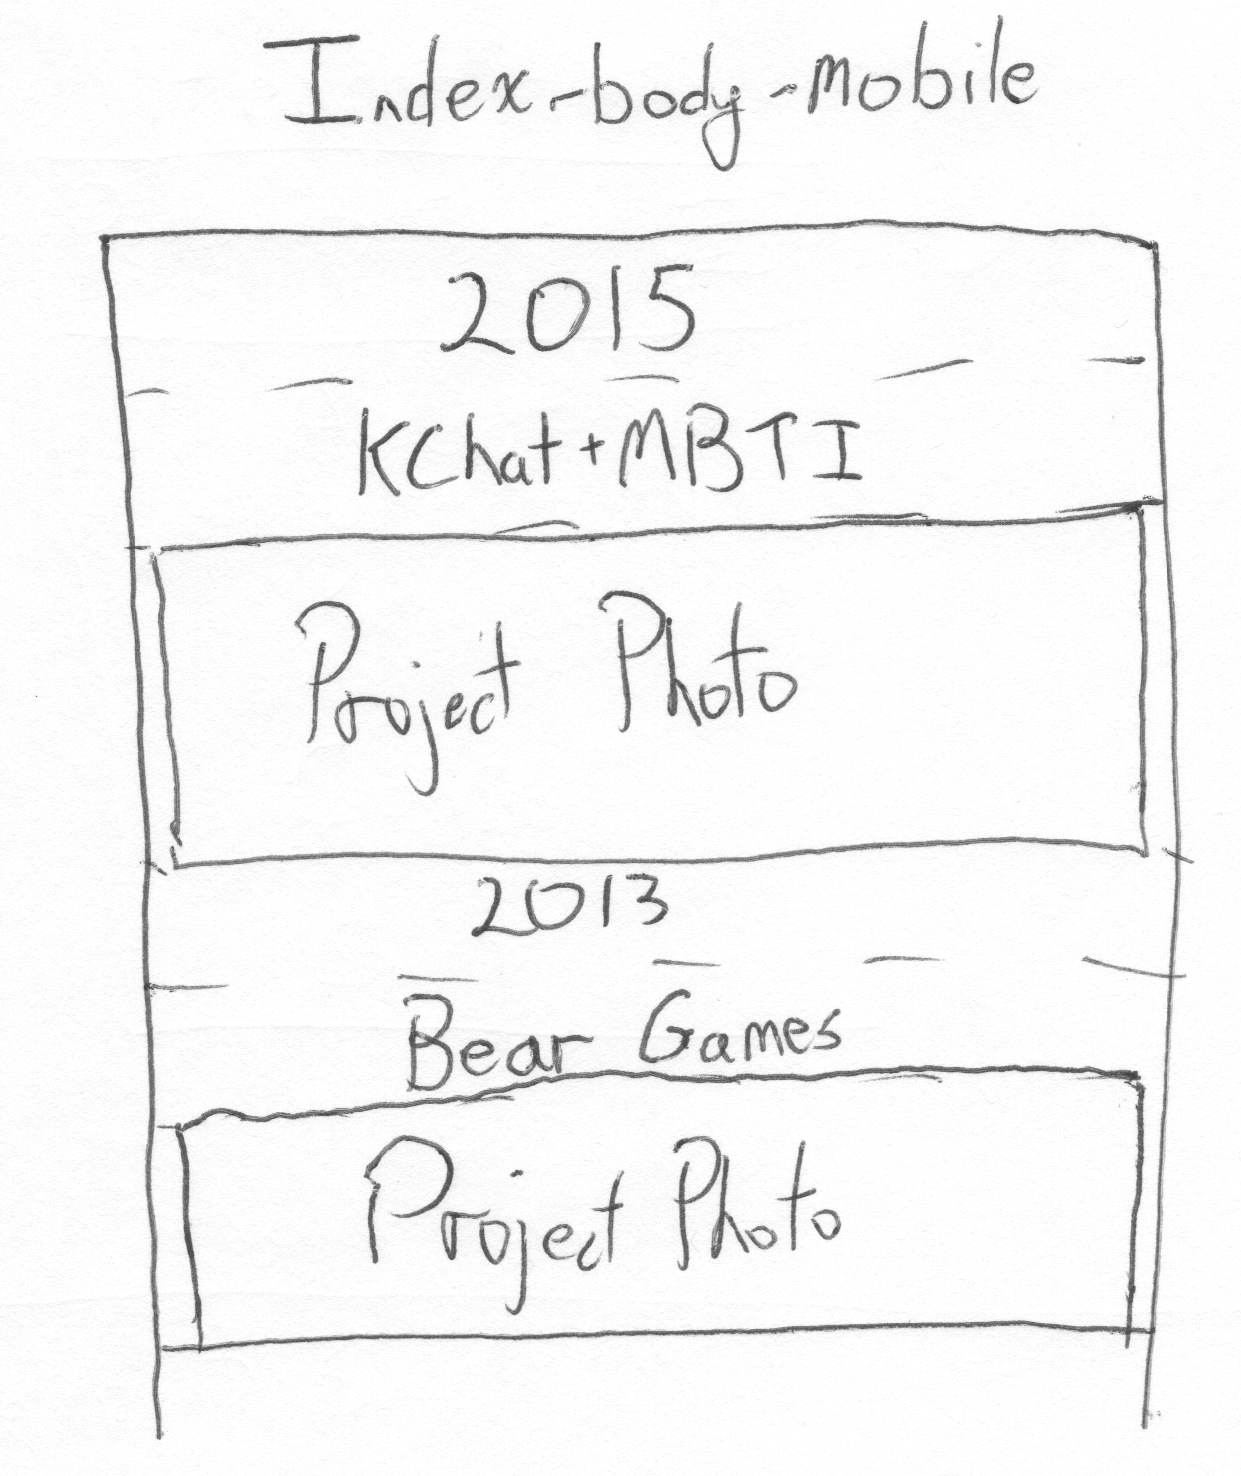 Index-body-mobile
2015
KChat+MBTI
Project Photo
2013
Bear Games
Project Photo